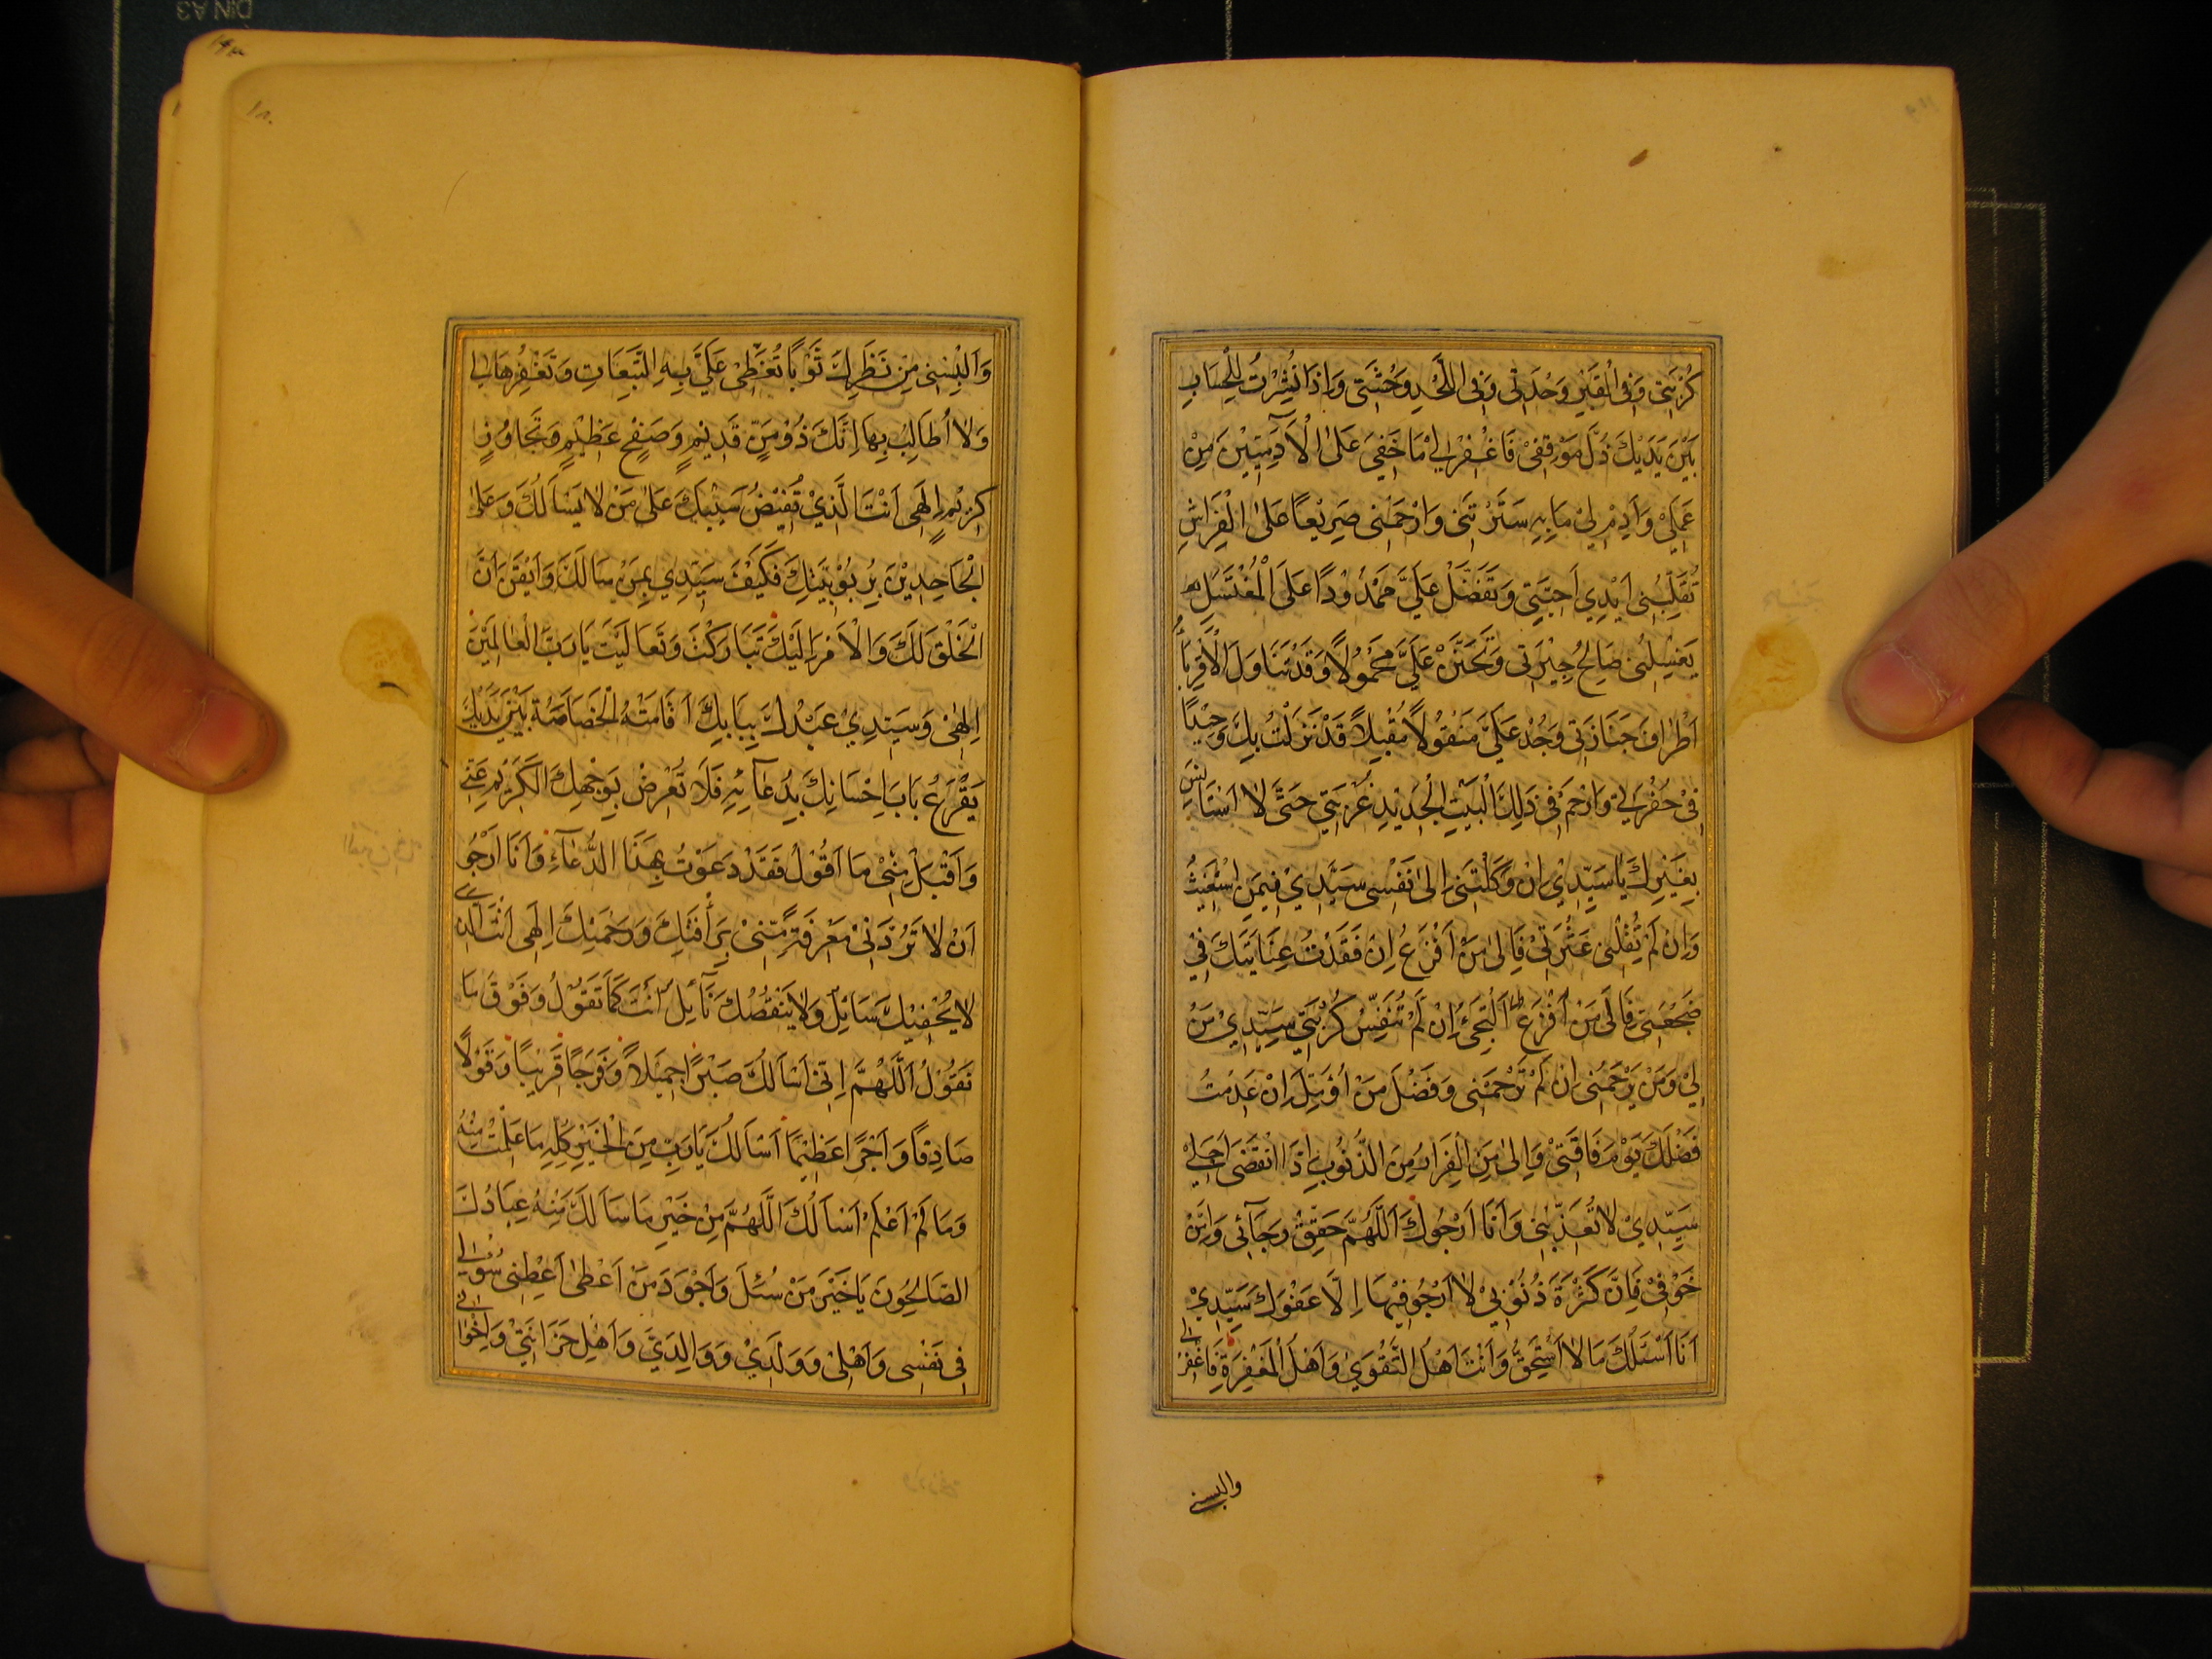 كُرْبَتِي وَفِي الْقَبْرِ وَحْدَتِي وَفِي اللَّحْدِ وَحْشَتِي وَاِذَا نُشِرْتُ لِلْحِسَابِ
بَيْنَ يَدَيْكَ ذُلَّ مَوْقِفِي فَاغْفِرْ لِي مَا خَفِيَ عَلَى الْآدَمِيّيْنَ مِنْ
عَمَلِي وَاَدِمْ لِي مَا بِهِ سَتَرْتَنِي وَارْحَمْنِي صَرِيْعًا عَلَى الْفِرَاشِ
تُقَلِّبُنِي اَيْدِي اَحِبَّتِي وَتَفَضَّلْ عَلَيَّ مَمْدُوْدًا عَلَى الْمُغْتَسَلِ
يَغْسِلُنِي صَالِحُ جِيْرَتِي وَتَحَنَّنْ عَلَيَّ مَحْمُوْلًا وَقَدْ تَنَاوَلَ الْاَقْرِبَاءُ
اَطْرَافَ جَنَازَتِي وَجُدْ عَلَيَّ مَنْقُوْلًا مُقْبِلًا قَدْ نَزَلْتُ بِكَ وَحِيْدًا
فِي حُفْرَتِي وَارْحَمْ فِي ذَلِكَ الْبَيْتِ الْجَدِيْدِ غُرْبَتِي حَتّى لَا اَسْتَانِسَ
بِغَيْرِكَ يَا سَيِّدِي اِنْ وَكَلْتَنِي اِلَى نَفْسِي سَيِّدِي فَبِمَنِ اَسْتَغِيْثُ
وَاِنْ لَمْ تُقِلْنِي عَثْرَتِي فَاِلَى مَنْ اَفْزَعُ اِنْ فَقَدْتُ عِنَايَتَكَ فِي
ضَجْعَتِي فَاِلَى مَنْ اَفْزَعُ اَلْتَجِئُ اِنْ لَمْ تُنَفِّسْ كُرْبَتِي سَيِّدِي مَنْ
لِي وَمَنْ يَرْحَمُنِي اِنْ لَمْ تَرْحَمْنِي وَفَضْلَ مَنْ اُؤَمِّلُ اِنْ عَدِمْتُ
فَضْلَكَ يَوْمَ فَاقَتِي وَاِلَى مَنِ الْفِرَارُ مِنَ الذُّنُوْبِ اِذَا انْقَضَى اَجَلِي
سَيِّدِي لَا تُعَذِّبْنِي وَاَنَا اَرْجُوْكَ اَللَّهُمَّ حَقِّقْ رَجَائِي وَاٰمِنْ
خَوْفِي فَاِنَّ كَثْرَةَ ذُنُوْبِي لَا اَرْجُوْ فِيْهَا اِلَّا عَفْوَكَ سَيِّدِي
اَنَا اَسْئَلُكَ مَا لَا اَسْتَحِقُّ وَاَنْتَ اَهْلُ التَّقْوَى وَاَهْلُ الْمَغْفِرَةِ فَاغْفِرْ لِي
والبسني
وَاَلْبِسْنِي مِنْ نَظَرِكَ ثَوْبًا تُغَطِّي عَلَيَّ بِهِ التَّبِعَاتِ وَتَغْفِرُهَا لِي
وَلَا اُطَالَبُ بِهَا اِنَّكَ ذُوْ مَنٍّ قَدِيْمٍ وَصَفْحٍ عَظِيْمٍ وَتَجَاوُزٍ
كَرِيْمٍ اِلٰهِي اَنْتَ الَّذِيْ تُفِيْضُ سَيْبَكَ عَلَى مَنْ لَا يَسْاَلُكَ وَعَلَى
الْجَاحِدِيْنَ بِرُبُوْبِيَّتِكَ فَكَيْفَ سَيِّدِي بِمَنْ سَاَلَكَ وَاَيْقَنَ اَنَّ
الْخَلْقَ لَكَ وَالْاَمْرَ اِلَيْكَ تَبَارَكْتَ وَتَعَالَيْتَ يَا رَبَّ الْعَالَمِيْنَ
اِلٰهِي وَسَيِّدِي عَبْدُكَ بِبَابِكَ اَقَامَتْهُ الْخَصَاصَةُ بَيْنَ يَدَيْكَ
يَقْرَعُ بَابَ اِحْسَانِكَ بِدُعَآئِهِ فَلَا تُعْرِضْ بِوَجْهِكَ الْكَرِيْمِ عَنِّي
وَاقْبَلْ مِنِّي مَا اَقُوْلُ فَقَدْ دَعَوْتُ بِهَذَا الدُّعَآءِ وَاَنَا اَرْجُو
اَنْ لَا تَرُدَّنِي مَعْرِفَةً مِنِّي بِرَأْفَتِكَ وَرَحْمَتِكَ اِلٰهِي اَنْتَ الَّذِي
لَا يُحْفِيْكَ سَائِلٌ وَلَا يَنْقُصُكَ نَآئِلٌ اَنْتَ كَمَا تَقُوْلُ وَفَوْقَ مَا
نَقُوْلُ اَللَّهُمَّ اِنِّي اَسْاَلُكَ صَبْرًا جَمِيْلًا وَفَرَجًا قَرِيْبًا وَقَوْلًا
صَادِقًا وَاَجْرًا عَظِيْمًا اَسْاَلُكَ يَا رَبِّ مِنَ الْخَيْرِ كُلِّهِ مَا عَلِمْتُ مِنْهُ
وَمَا لَمْ اَعْلَمْ اَسْاَلُكَ اللَّهُمَّ مِنْ خَيْرِ مَا سَاَلَكَ مِنْهُ عِبَادُكَ
الصَّالِحُوْنَ يَا خَيْرَ مَنْ سُئِلَ وَاَجْوَدَ مَنْ اَعْطَى اَعْطِنِي سُؤْلِي
فِي نَفْسِي وَاَهْلِي وَوَلَدِي وَوَالِدَيَّ وَاَهْلِ حُزَانَتِي وَاِخْوَانِي